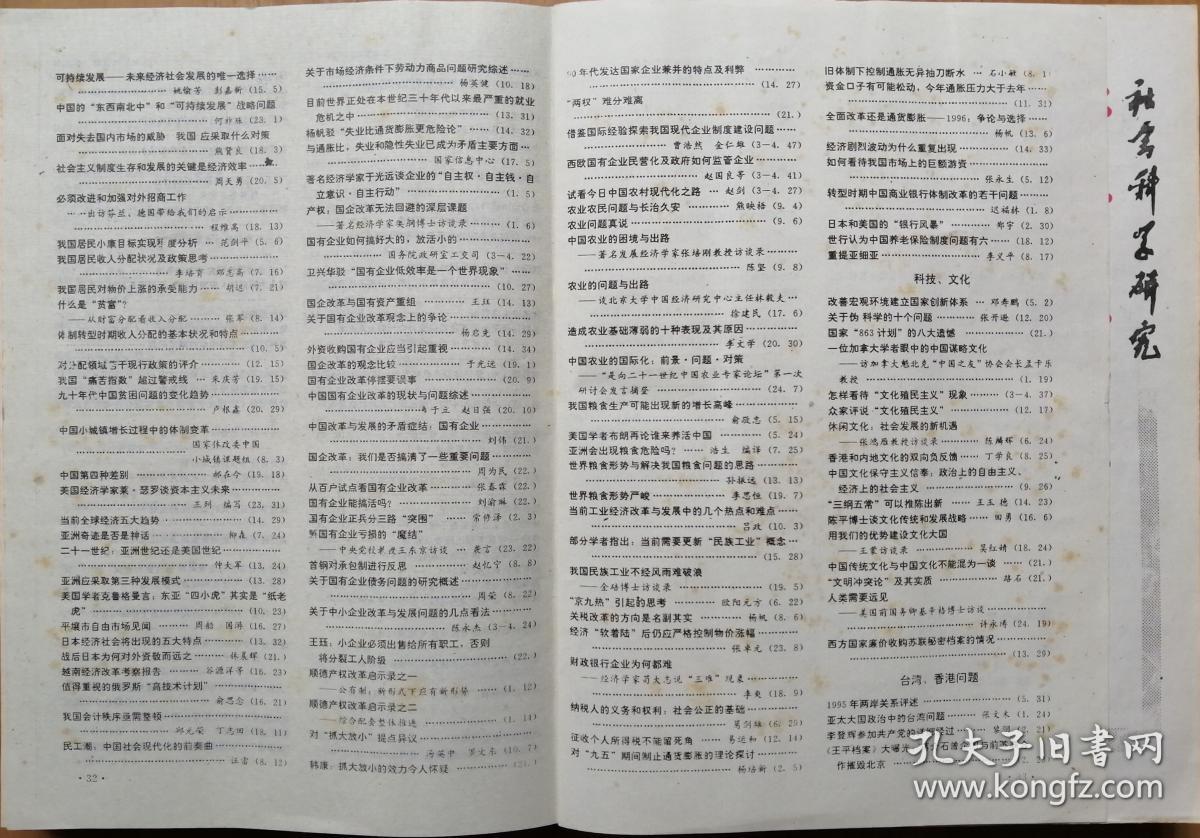 可持续发展——未来经济社会发展的唯一选择……
姚愉芳 彭嘉新 (15. 5)
中国的“东西南北中”和“可持续发展”战略问题
(23. 1)
面对失去国内市场的威胁 我国应采取什么对策
熊贤良 (18. 3)
社会主义制度生存和发展的关键是经济效率……
周天勇 (20. 5)
必须改进和加强对外招商工作
……出访芬兰、德国带给我们的启示……
程惟高 (18. 13)
我国居民小康目标实现程度分析 … 范剑平 (5. 6)
我国居民收入分配状况及政策思考……
李培育 邓志高 (7. 16)
我国居民对物价上涨的承受能力…… 胡迟 (7. 21)
什么是“贫富”?
——从财富分配看收入分配…… 张军 (8. 14)
体制转型时期收入分配的基本状况和特点……
(10. 5)
对分配领域若干现行政策的评介…… (12. 15)
我国“痛苦指数”超过警戒线 … 朱庆芳 (19. 15)
九十年代中国贫困问题的变化趋势……
卢根鑫 (20. 29)
中国小城镇增长过程中的体制变革……
国家体改委中国
小城镇课题组 (8. 3)
中国第四种差别 …… 郝在今 (19. 18)
美国经济学家莱·瑟罗谈资本主义未来……
王列 编写 (23. 31)
当前全球经济五大趋势…… (14. 29)
亚洲奇迹是否是神话…… 柳森 (7. 24)
二十一世纪:亚洲世纪还是美国世纪……
仲大军 (13. 24)
亚洲应采取第三种发展模式…… (13. 28)
美国学者克鲁格曼言:东亚“四小虎”其实是“纸老
虎”…… (10. 23)
平壤市自由市场见闻 …… 周船 国涛 (16. 27)
日本经济社会将出现的五大特点…… (13. 32)
战后日本为何对外资敬而远之 …… 林晨辉 (21.)
越南经济改革考察报告 …… 谷源洋等 (16. 23)
值得重视的俄罗斯“高技术计划”……
俞思念 (16. 21)
我国会计秩序亟需整顿……
邱元荣 丁志田 (18. 11)
民工潮:中国社会现代化的前奏曲……
汪雷 (8. 12)
·32·
关于市场经济条件下劳动力商品问题研究综述……
杨英健 (10. 18)
目前世界正处在本世纪三十年代以来最严重的就业
危机之中…… (13. 31)
杨帆驳“失业比通货膨胀更危险论”…… (14. 32)
与通胀比,失业和隐性失业已成为矛盾主要方面…
国家信息中心 (17. 5)
著名经济学家于光远谈企业的“自主权·自主钱·自
立意识·自主行动”…… (1. 5)
产权:国企改革无法回避的深层课题
——著名经济学家吴稼祥博士访谈录…… (1. 6)
国有企业如何搞好大的,放活小的……
国务院政研室工交司 (3—4. 22)
卫兴华驳“国有企业低效率是一个世界现象”……
(10. 27)
国企改革与国有资产重组 …… 王珏 (14. 13)
关于国有企业改革观念上的争论……
杨启先 (14. 29)
外资收购国有企业应当引起重视…… (14. 34)
国企改革的观念比较…… 于光远 (19. 1)
国有企业改革停摆要误事 …… (20. 9)
中国国有企业改革的现状与问题综述……
肖于立 赵日强 (20. 10)
中国改革与发展的矛盾症结:国有企业……
刘伟 (21.)
国企改革:我们是否搞清了一些重要问题……
周为民 (22.)
从百户试点看国有企业改革…… 张春霖 (22.)
国有企业能搞活吗? …… 刘渝琳 (22.)
国有企业正兵分三路“突围” …… 常修泽 (2. 3)
国有企业亏损的“魔结”
——中央党校教授王东京访谈 … 袭言 (23. 22)
首钢对承包制进行反思 …… 赵忆宁 (8. 8)
关于国有企业债务问题的研究概述……
周荣 (8. 22)
关于中小企业改革与发展问题的几点看法……
陈永杰 (3—4. 24)
王珏:小企业必须出售给所有职工,否则
将分裂工人阶级…… (22.)
顺德产权改革启示录之一
——公有制:新形式下应有新形势…… (1. 12)
顺德产权改革启示录之二
——综合配套整体推进…… (1. 14)
对“抓大放小”提点异议……
汤英中 罗文东 (10. 7)
韩康:抓大放小的效力令人怀疑……
90年代发达国家企业兼并的特点及利弊 ……
(14. 27)
“两权”难分难离
(21.)
借鉴国际经验探索我国现代企业制度建设问题……
曹浩然 金仁雄 (3—4. 47)
西欧国有企业民营化及政府如何监管企业……
赵国良等 (3—4. 41)
试看今日中国农村现代化之路 … 赵剑 (3—4. 27)
农业农民问题与长治久安 …… 熊映梧 (9. 4)
农业问题真说…… (9. 6)
中国农业的困境与出路
——著名发展经济学家张培刚教授访谈录……
陈坚 (9. 8)
农业的问题与出路
——谈北京大学中国经济研究中心主任林毅夫…
徐建民 (17. 6)
造成农业基础薄弱的十种表现及其原因……
李文学 (20. 30)
中国农业的国际化:前景·问题·对策
——“是向二十一世纪中国农业专家论坛”第一次
研讨会发言摘登…… (24. 7)
我国粮食生产可能出现新的增长高峰……
俞敬忠 (5. 15)
美国学者布朗再论谁来养活中国…… (5. 24)
亚洲会出现粮食危险吗? …… 浩生 编译 (7. 25)
世界粮食形势与解决我国粮食问题的思路……
孙振远 (13. 13)
世界粮食形势严峻 …… 李思恒 (19. 7)
当前工业经济改革与发展中的几个热点和难点……
吕政 (10. 3)
部分学者指出:当前需要更新“民族工业”概念…
(15. 28)
我国民族工业不经风雨难破浪
——金碚博士访谈录…… (19. 5)
“京九热”引起的思考 …… 欧阳元方 (6. 22)
关税改革的方向是名副其实…… 杨帆 (8. 6)
经济“软着陆”后仍应严格控制物价涨幅……
张卓元 (23. 8)
财政银行企业为何都难
——经济学家苟大志说“三难”现象……
李爽 (18. 9)
纳税人的义务和权利:社会公正的基础……
葛剑雄 (6. 29)
征收个人所得税不能留死角 …… 易运和 (12. 14)
对“九五”期间制止通货膨胀的理论探讨……
杨培新 (2. 5)
旧体制下控制通胀无异抽刀断水 … 石小敏 (8. 1)
资金口子有可能松动,今年通胀压力大于去年……
(11. 31)
全面改革还是通货膨胀——1996:争论与选择……
杨帆 (13. 6)
经济剧烈波动为什么重复出现…… (14. 33)
如何看待我国市场上的巨额游资……
张永生 (5. 12)
转型时期中国商业银行体制改革的若干问题……
迟福林 (1. 8)
日本和美国的“银行风暴”…… 郑宇 (2. 30)
世行认为中国养老保险制度问题有六…… (18. 12)
重提亚细亚…… 李义平 (8. 17)
科技、文化
改善宏观环境建立国家创新体系 … 邓寿鹏 (5. 2)
关于伪科学的十个问题…… 张开逊 (12. 20)
国家“863计划”的八大遗憾 …… (21.)
一位加拿大学者眼中的中国谋略文化
——访加拿大魁北克“中国之友”协会会长孟于乐
教授…… (1. 19)
怎样看待“文化殖民主义”现象…… (3—4. 37)
众家评说“文化殖民主义”…… (12. 17)
休闲文化:社会发展的新机遇
——张鸿雁教授访谈录…… 陈麟辉 (6. 24)
香港和内地文化的双向负反馈…… 丁学良 (8. 25)
中国文化保守主义信奉:政治上的自由主义、
经济上的社会主义…… (9. 26)
“三纲五常”可以推陈出新 …… 王玉德 (14. 23)
陈平博士谈文化传统和发展战略…… 田勇 (16. 6)
用我们的优势建设文化大国
——王蒙访谈录…… 吴红婧 (18. 24)
中国传统文化与中国文化不能混为一谈…… (21.)
“文明冲突论”及其实质…… 路石 (21.)
人类需要远见
——美国前国务卿基辛格博士访谈……
许永涛 (24. 19)
西方国家廉价收购苏联秘密档案的情况……
(13. 29)
台湾、香港问题
1995年两岸关系评述…… (5. 31)
亚太大国政治中的台湾问题…… 张文木 (1. 24)
李登辉参加共产党的详细经过……
《王平档案》大曝光
作摧毁北京
社会科学研究
孔夫子旧书网
www.kongfz.com